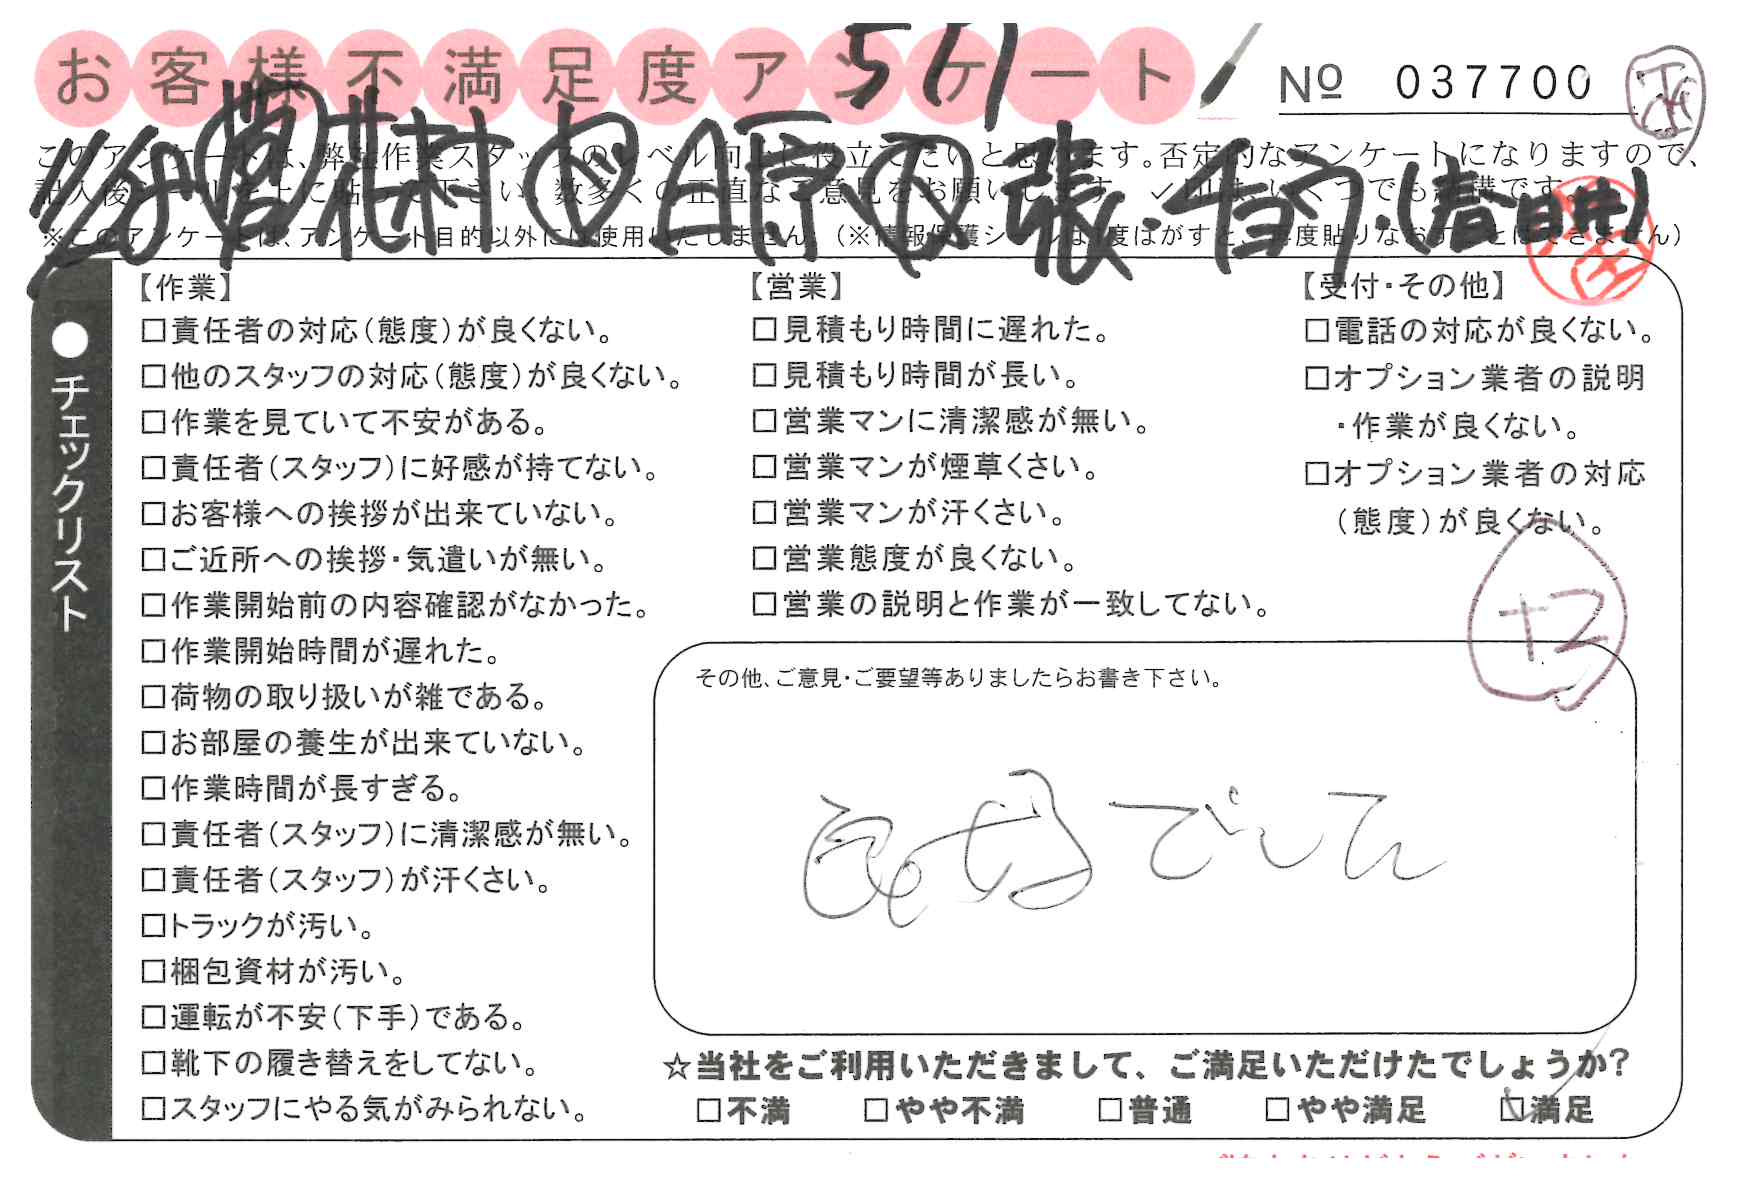 お客様不満足度アンケート
511
№ 037700
このアンケートは、弊社作業スタッフのレベル向上に役立てたいと思います。否定的なアンケートになりますので、
記入後シールを上に貼って下さい。数多くの正直なご意見をお願いします。✓印は、いくつでも結構です。
※このアンケートは、アンケート目的以外には使用いたしません。(※情報保護シールは1度はがすと、再度貼りなおすことはできません)
●チェックリスト
【作業】
□責任者の対応(態度)が良くない。
□他のスタッフの対応(態度)が良くない。
□作業を見ていて不安がある。
□責任者(スタッフ)に好感が持てない。
□お客様への挨拶が出来ていない。
□ご近所への挨拶・気遣いが無い。
□作業開始前の内容確認がなかった。
□作業開始時間が遅れた。
□荷物の取り扱いが雑である。
□お部屋の養生が出来ていない。
□作業時間が長すぎる。
□責任者(スタッフ)に清潔感が無い。
□責任者(スタッフ)が汗くさい。
□トラックが汚い。
□梱包資材が汚い。
□運転が不安(下手)である。
□靴下の履き替えをしてない。
□スタッフにやる気がみられない。
【営業】
□見積もり時間に遅れた。
□見積もり時間が長い。
□営業マンに清潔感が無い。
□営業マンが煙草くさい。
□営業マンが汗くさい。
□営業態度が良くない。
□営業の説明と作業が一致してない。
【受付・その他】
□電話の対応が良くない。
□オプション業者の説明
・作業が良くない。
□オプション業者の対応
(態度)が良くない。
その他、ご意見・ご要望等ありましたらお書き下さい。
でした
☆当社をご利用いただきまして、ご満足いただけたでしょうか?
□不満 □やや不満 □普通 □やや満足 ☑満足